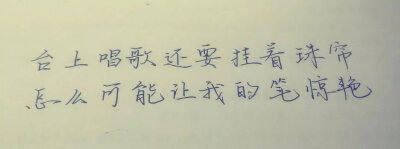 台上唱歌还要挂着珠帘
怎么可能让我的笔惊艳